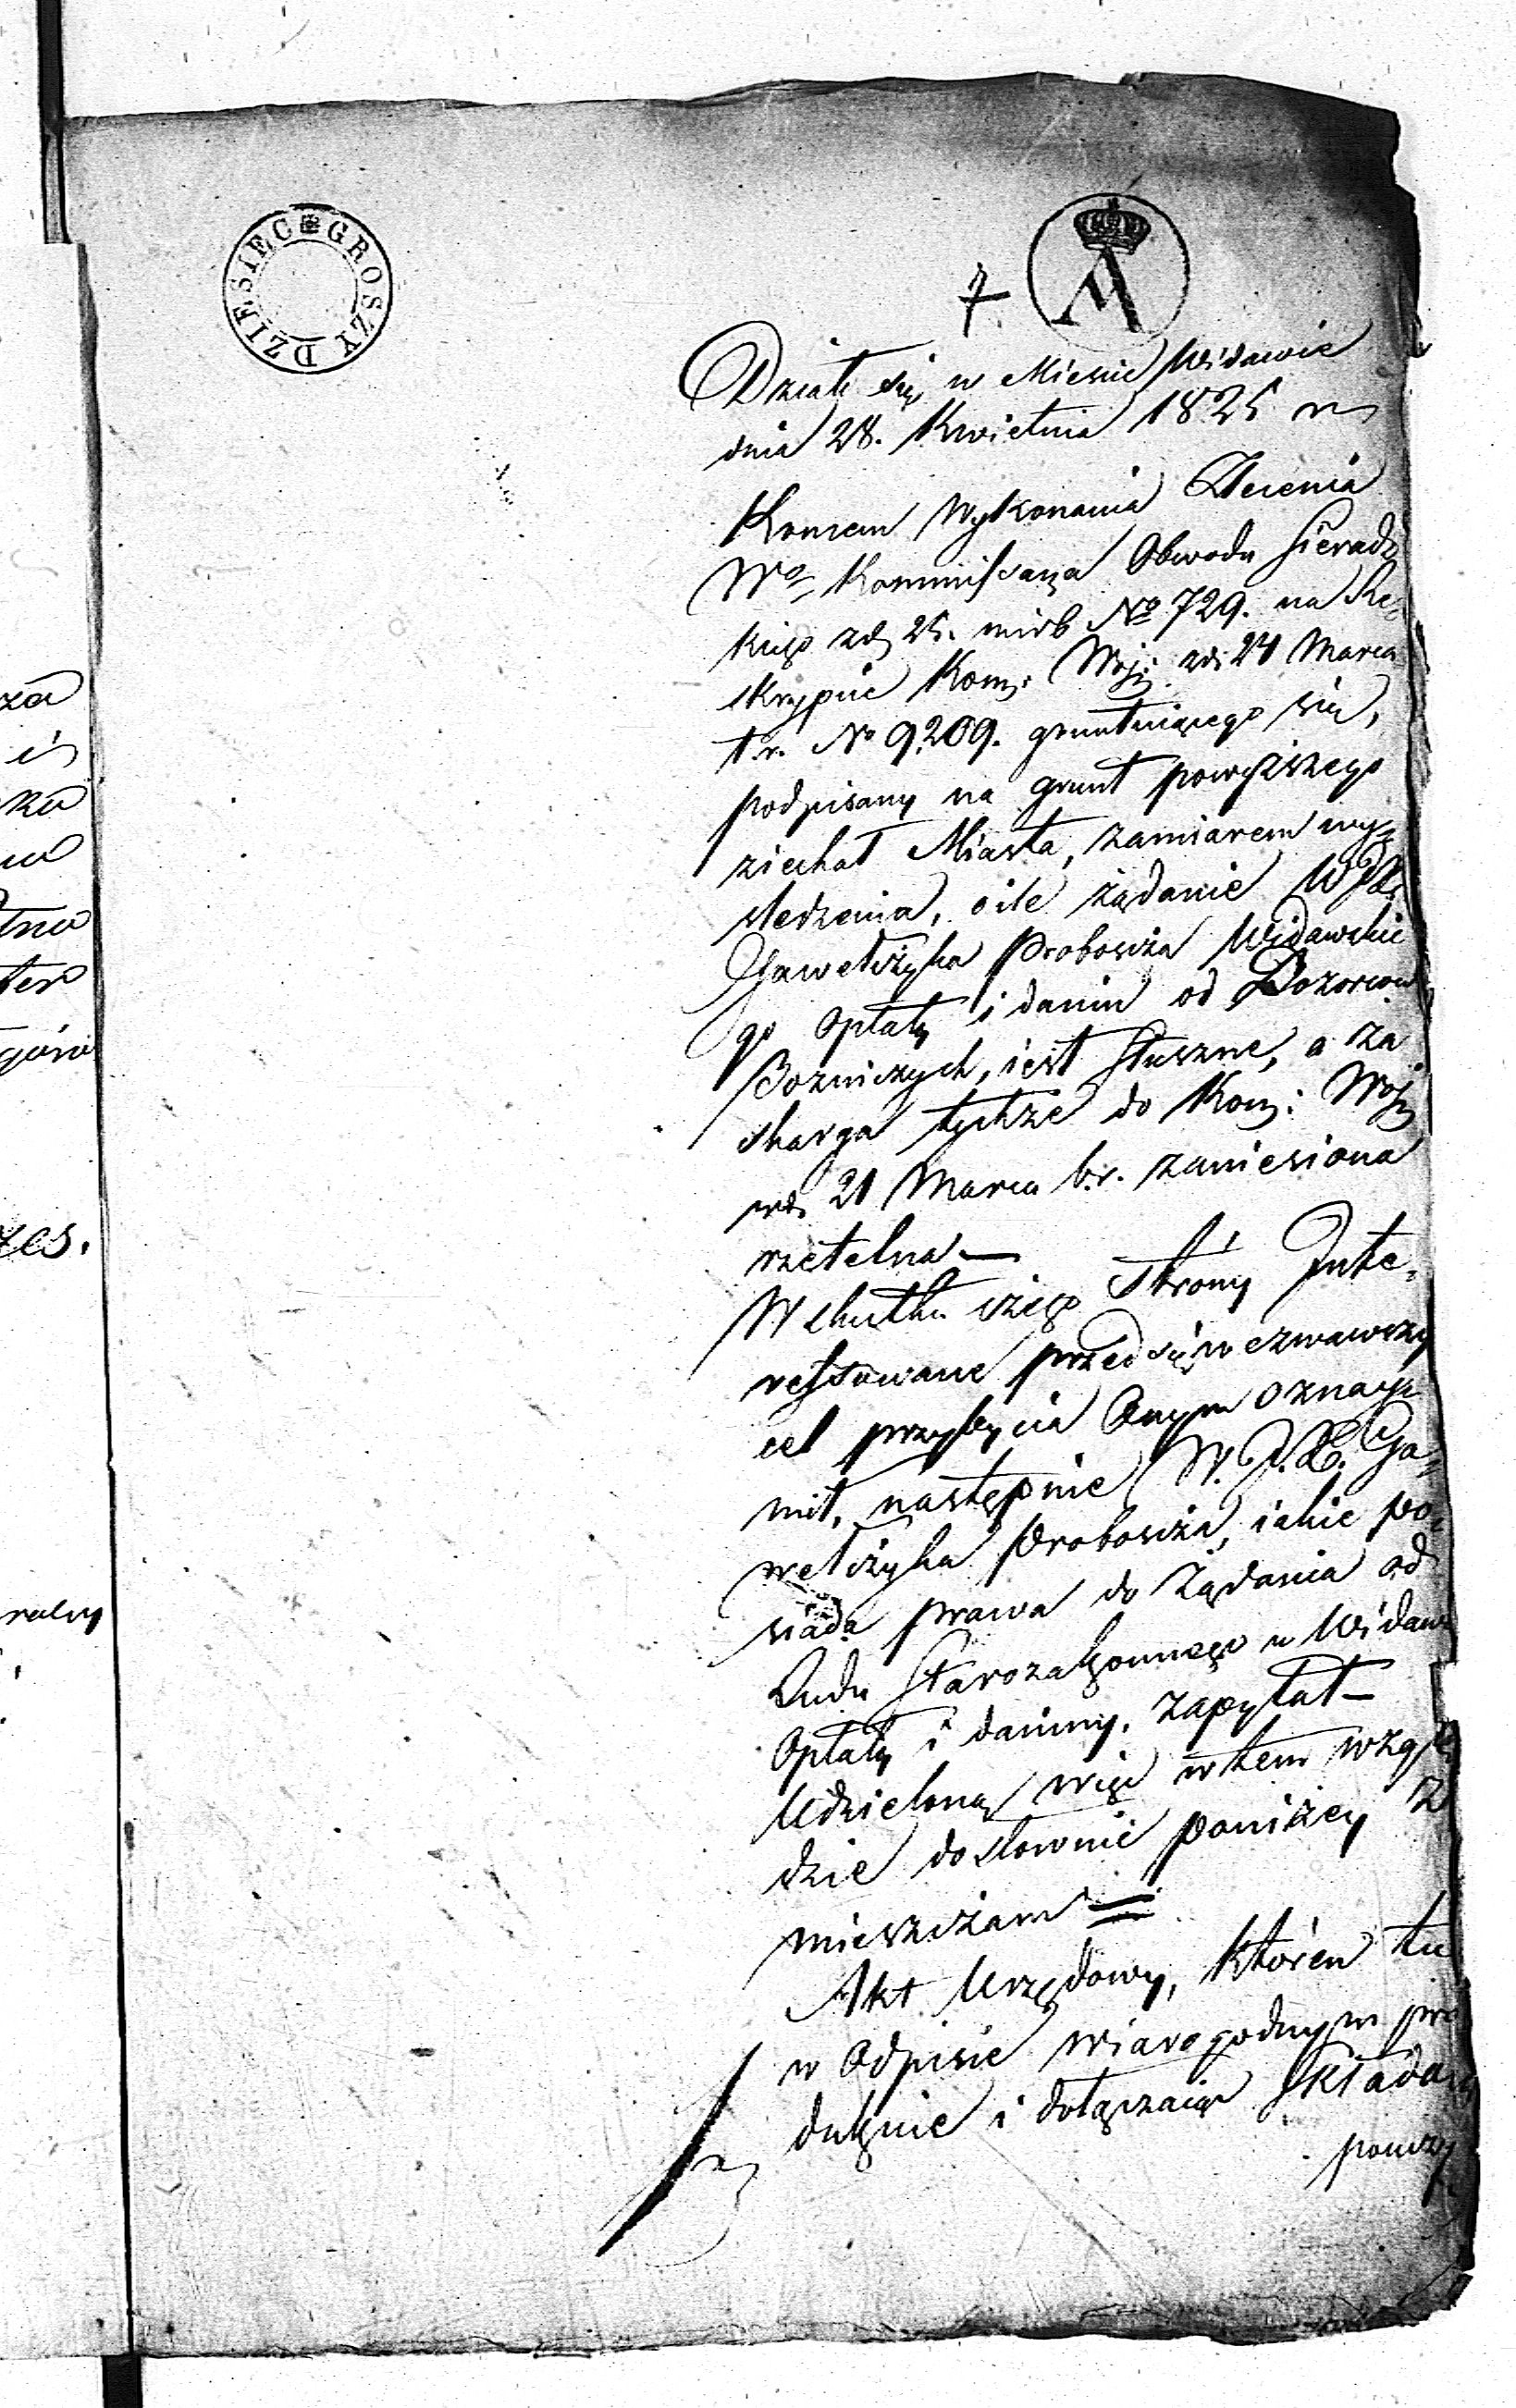 DZIESIĘC GROSZY
7
Działo się w Mieście Widawie
dnia 28. Kwietnia 1825 r
Koncem Wykonania Zlecenia
Wo Kommissarza Obwodu Sieradz
kiego zd 25. mieb No 729. na Re-
skrypcie Kom: Woj: zd: 24 Marca
t.r. No 9,209. gruntuiącego się,
podpisany na grunt powyższego
ziechał Miasta, zamiarem wy-
sledzenia, oile żądanie W JX.
Gawełczyka Proboszcza Widawskie
go opłaty i danin od Dozorców
Bozniczych, iest słuszne, a za
skarga tychże do Kom: Woj
wd. 21 Marca b.r. zaniesiona
rzetelna —
W skutku czego strony Inte-
ressowane przed się wezwawszy
cel przybycia Onym oznay-
mił, następnie W. J. X. Ga-
wełczyka Proboszcza, iakie po-
siada prawa do Żądania od
Ludu Starozakonnego w Widaw
Opłaty i daniny, zapytał —
Udzieloną więc wtem wzglę
dzie dosłownie poniżey z
mieszczam =
Akt Urzędowy, któren tu
w Odpisie wiarogodnym pro
dukuie i dołączaiąc składa
powzy
za
ków
tno
ter
zes.